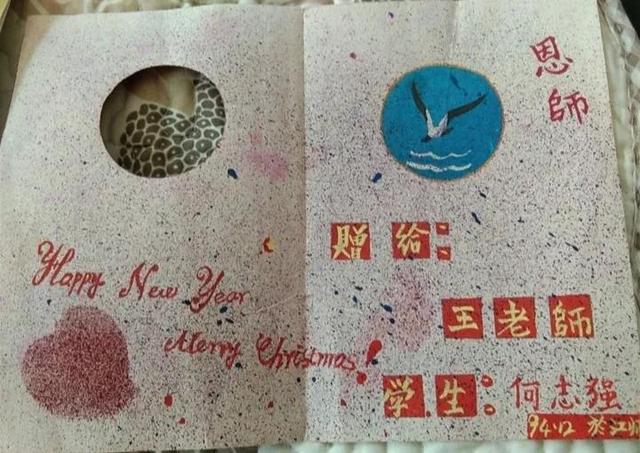 Happy New Year
Merry Christmas!
恩師
贈给:
王老師
学生:何志强
94.12 於江师